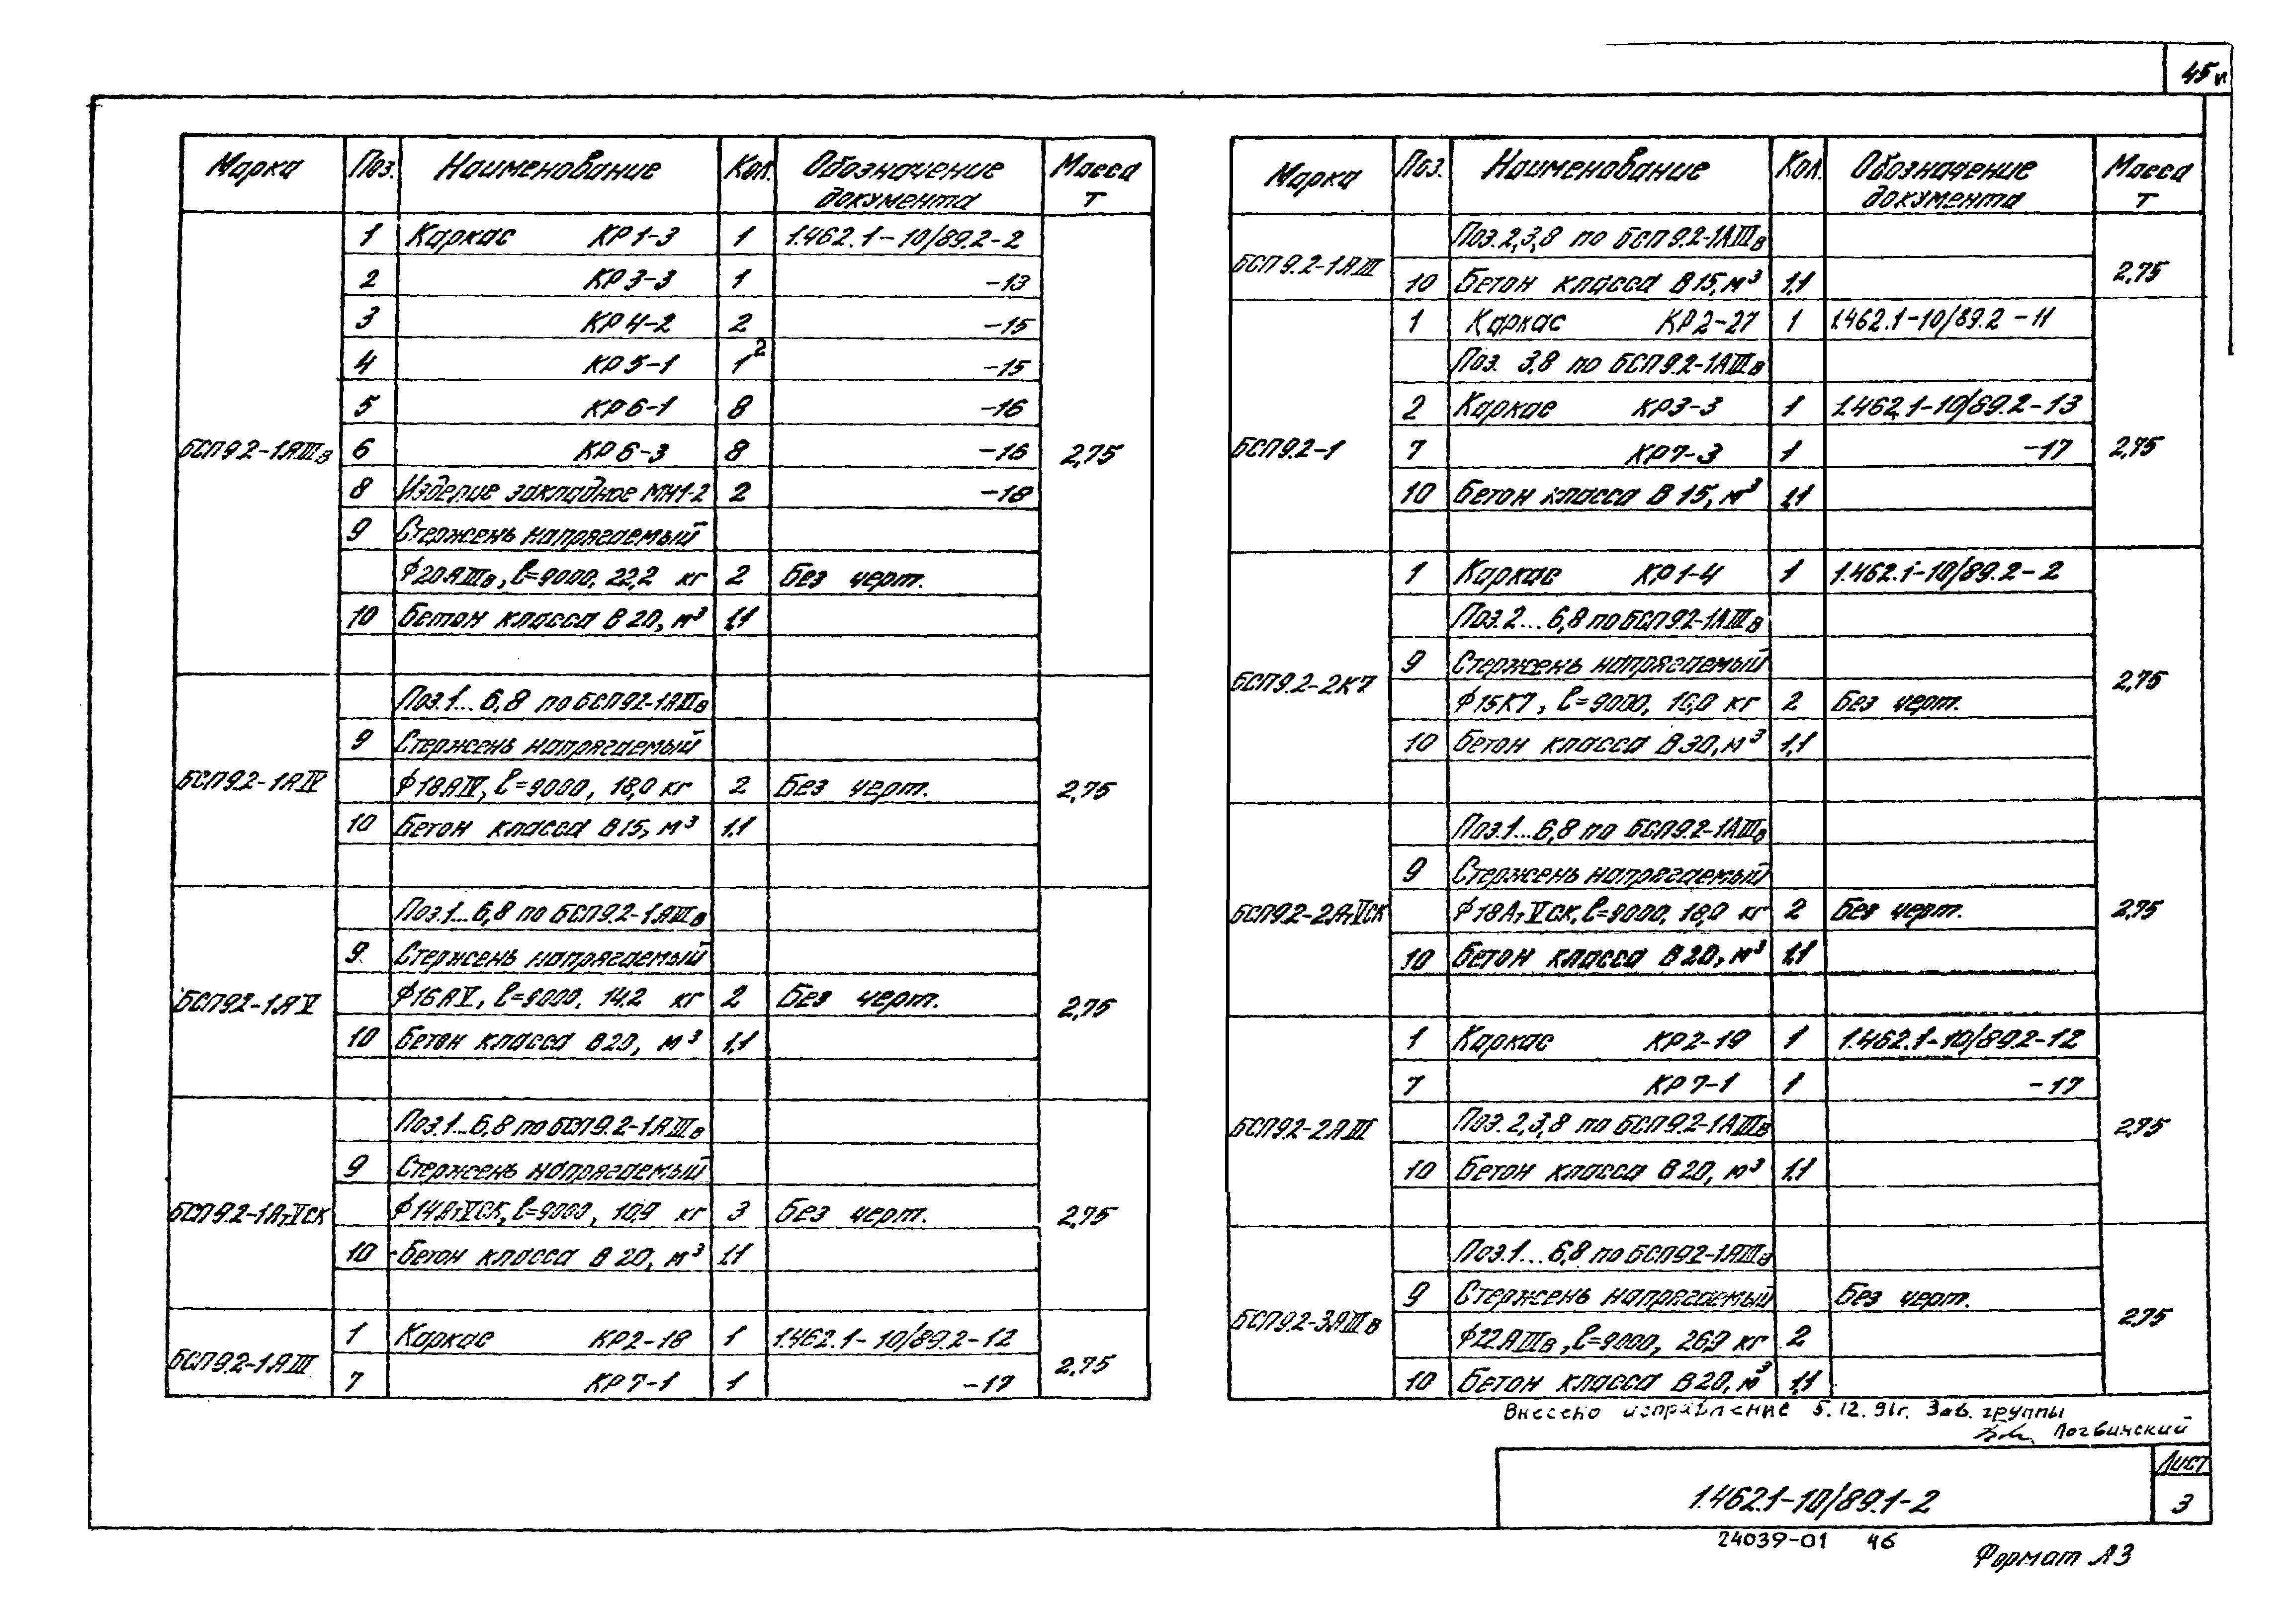 45 и
Марка Поз. Наименование Кол. Обозначение документа Масса т
БСП9.2-1АIIIв 2,75
1 Каркас КР1-3 1 1.462.1-10/89.2-2
2 КР3-3 1 -13
3 КР4-2 2 -15
4 КР5-1 1 2 -15
5 КР6-1 8 -16
6 КР6-3 8 -16
8 Изделие закладное МН1-2 2 -18
9 Стержень напрягаемый
ϕ20АIIIв, ℓ=9000, 22,2 кг 2 Без черт.
10 Бетон класса В20, м³ 1,1
БСП9.2-1АIV 2,75
Поз.1...6,8 по БСП9.2-1АIIIв
9 Стержень напрягаемый
ϕ18АIV, ℓ=9000, 18,0 кг 2 Без черт.
10 Бетон класса В15, м³ 1,1
БСП9.2-1АV 2,75
Поз.1...6,8 по БСП9.2-1АIIIв
9 Стержень напрягаемый
ϕ16АV, ℓ=9000, 14,2 кг 2 Без черт.
10 Бетон класса В20, м³ 1,1
БСП9.2-1АтVСК 2,75
Поз.1...6,8 по БСП9.2-1АIIIв
9 Стержень напрягаемый
ϕ14АтVСК, ℓ=9000, 10,9 кг 3 Без черт.
10 Бетон класса В20, м³ 1,1
БСП9.2-1АIII 2,75
1 Каркас КР2-18 1 1.462.1-10/89.2-12
7 КР7-1 1 -17
Марка Поз. Наименование Кол. Обозначение документа Масса т
БСП9.2-1АIII 2,75
Поз. 2,3,8 по БСП9.2-1АIIIв
10 Бетон класса В15, м³ 1,1
БСП9.2-1 2,75
1 Каркас КР2-27 1 1.462.1-10/89.2-11
Поз. 3,8 по БСП9.2-1АIIIв
2 Каркас КР3-3 1 1.462.1-10/89.2-13
7 КР7-3 1 -17
10 Бетон класса В15, м³ 1,1
БСП9.2-2К7 2,75
1 Каркас КР1-4 1 1.462.1-10/89.2-2
Поз.2...6,8 по БСП9.2-1АIIIв
9 Стержень напрягаемый
ϕ15К7, ℓ=9000, 10,0 кг 2 Без черт.
10 Бетон класса В30, м³ 1,1
БСП9.2-2АтVСК 2,75
Поз.1...6,8 по БСП9.2-1АIIIв
9 Стержень напрягаемый
ϕ18АтVСК, ℓ=9000, 18,0 кг 2 Без черт.
10 Бетон класса В20, м³ 1,1
БСП9.2-2АIII 2,75
1 Каркас КР2-19 1 1.462.1-10/89.2-12
7 КР7-1 1 -17
Поз. 2,3,8 по БСП9.2-1АIIIв
10 Бетон класса В20, м³ 1,1
БСП9.2-3АIIIв 2,75
Поз.1...6,8 по БСП9.2-1АIIIв
9 Стержень напрягаемый Без черт.
ϕ22АIIIв, ℓ=9000, 26,9 кг 2
10 Бетон класса В20, м³ 1,1
Внесено исправление 5.12.91г. Зав. группы
Логвинский
1.462.1-10/89.1-2
Лист
3
24039-01 46
Формат А3